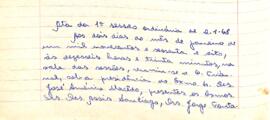 Ata da 1ª sessão ordinária de 2-1-68
Aos dois dias do mês de janeiro de
um mil novecentos e sessenta e oito,
às dezesseis horas e trinta minutos, na
sala das sessões, reuniu-se o
sob a presidência do Exmo. Sr. Des.
José Américo, presentes os Exmos.
Srs. Des. Santiago, Drs. Jorge